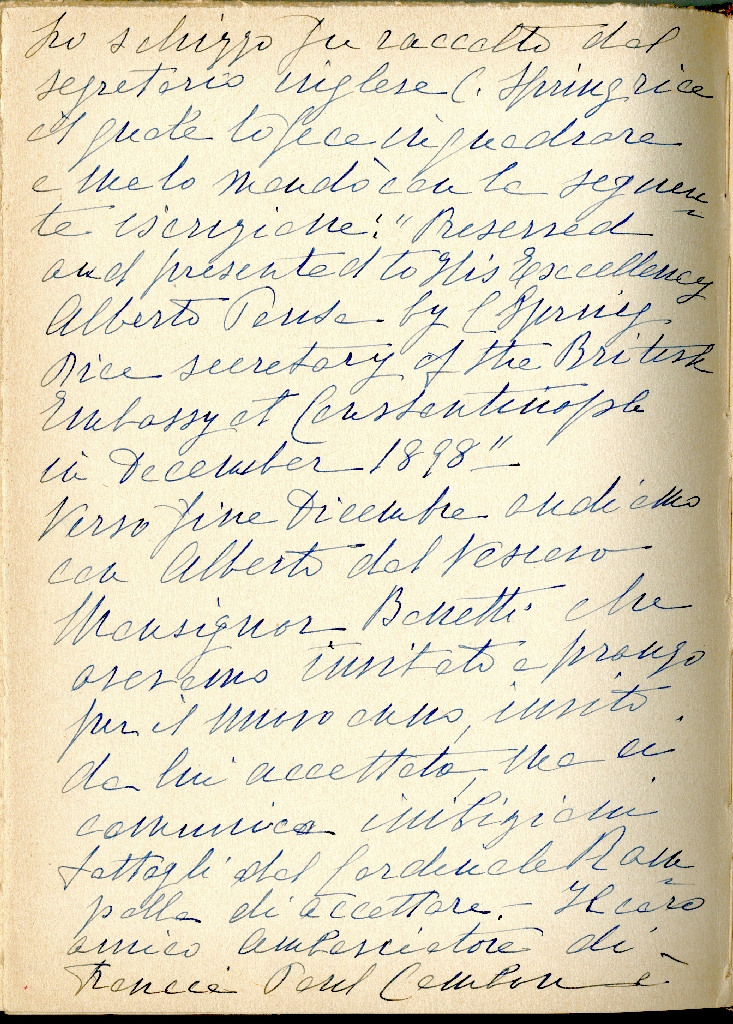 Lo schizzo fu raccolto dal
segretario inglese C. Spring rice
il quale lo fece inquadrare
e me lo mandò con la seguen-
te iscrizione: "Preserved
and presented to His Excellency
Alberto Pansa by C Spring
Rice secretary of the British
Embassy at Constantinople
in December 1898"
Verso fine Dicembre andiamo
con Alberto dal Vescovo
Monsignor Bonetti che
avevamo invitato a pranzo
per il nuovo anno, invito
da lui accettato, ma ci
comunica inibizioni
fattagli dal Cardinale Ram-
polla di accettare. - Il caro
amico Ambasciatore di
Francia Paul Cambon è